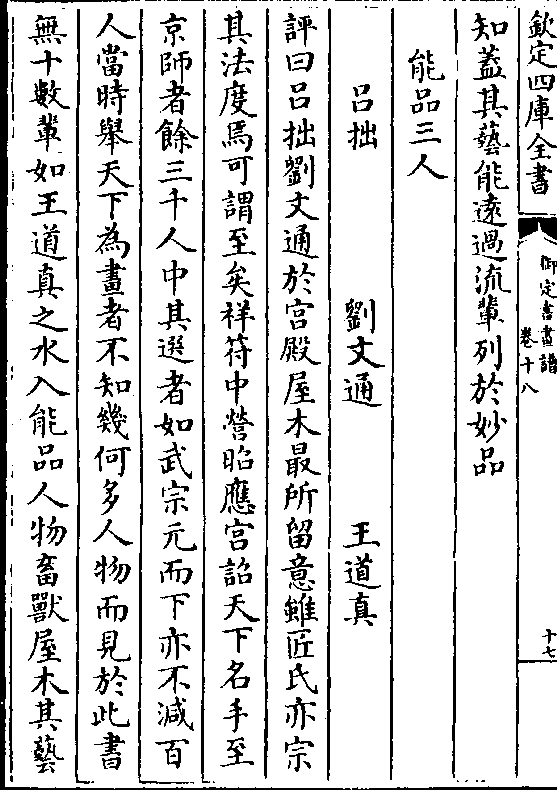 欽定四庫全書
御定書畫譜
卷十八
十七
知蓋其藝能遠過流輩列於妙品
能品三人
呂拙　劉文通　王道真
評曰呂拙劉文通於宫殿屋木最所留意雖匠氏亦宗
其法度焉可謂至矣祥符中營昭應宫詔天下名手至
京師者餘三千人中其選者如武宗元而下亦不減百
人當時舉天下為畫者不知幾何多人物而見於此書
無十數輩如王道真之水入能品人物畜獸屋木其藝